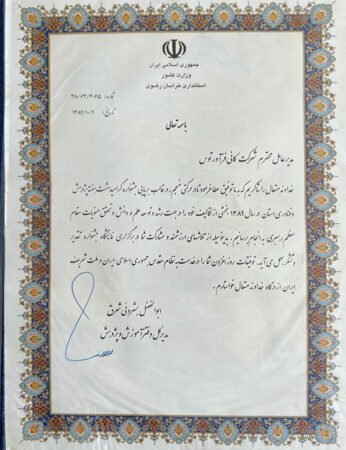 جمهوری اسلامی ایران
وزارت کشور
استانداری خراسان رضوی
شماره: ۳۸/۶۳/۴۰۶۵
تاریخ: ۱۳۸۹/۱۰/۹
باسمه تعالی
مدیرعامل محترم شرکت کانی فرآور توس
خداوند متعال را شاکریم که به ما توفیق عطا فرمود تا در حرکتی منسجم، و در قالب برپایی جشنواره گرامیداشت هفته پژوهش
و فناوری استان در سال ۱۳۸۹، بخشی از تکالیف خود را در جهت رشد و توسعه علم و دانش و تحقق منویات مقام
معظم رهبری به انجام برسانیم. بدینوسیله از تلاشهای ارزشمند و مشارکت شما در برگزاری نمایشگاه جشنواره تقدیر
و تشکر بعمل می‌آید. توفیقات روز افزون شما را در خدمت به نظام مقدس جمهوری اسلامی ایران و ملت شریف
ایران از درگاه خداوند متعال خواستارم.
ابوالفضل بشرویی شرق
مدیرکل دفتر آموزش و پژوهش